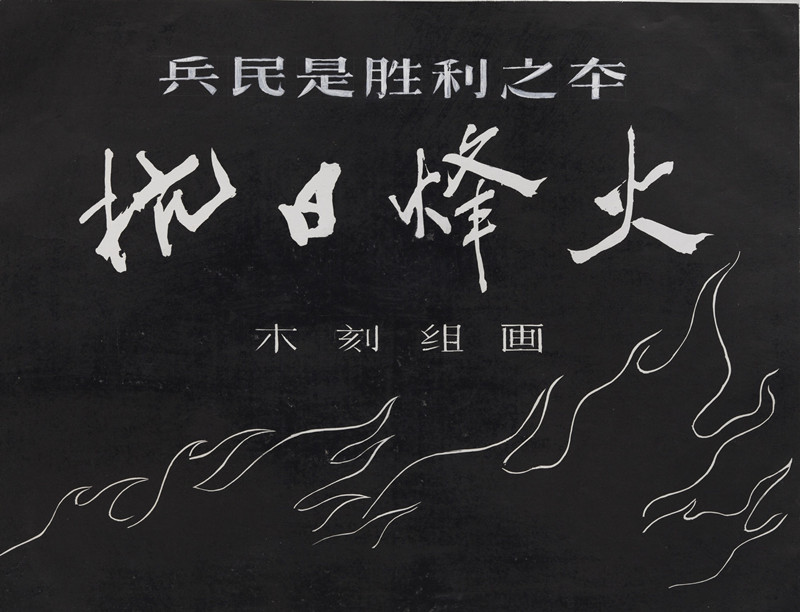 兵民是胜利之本
抗日烽火
木刻组画